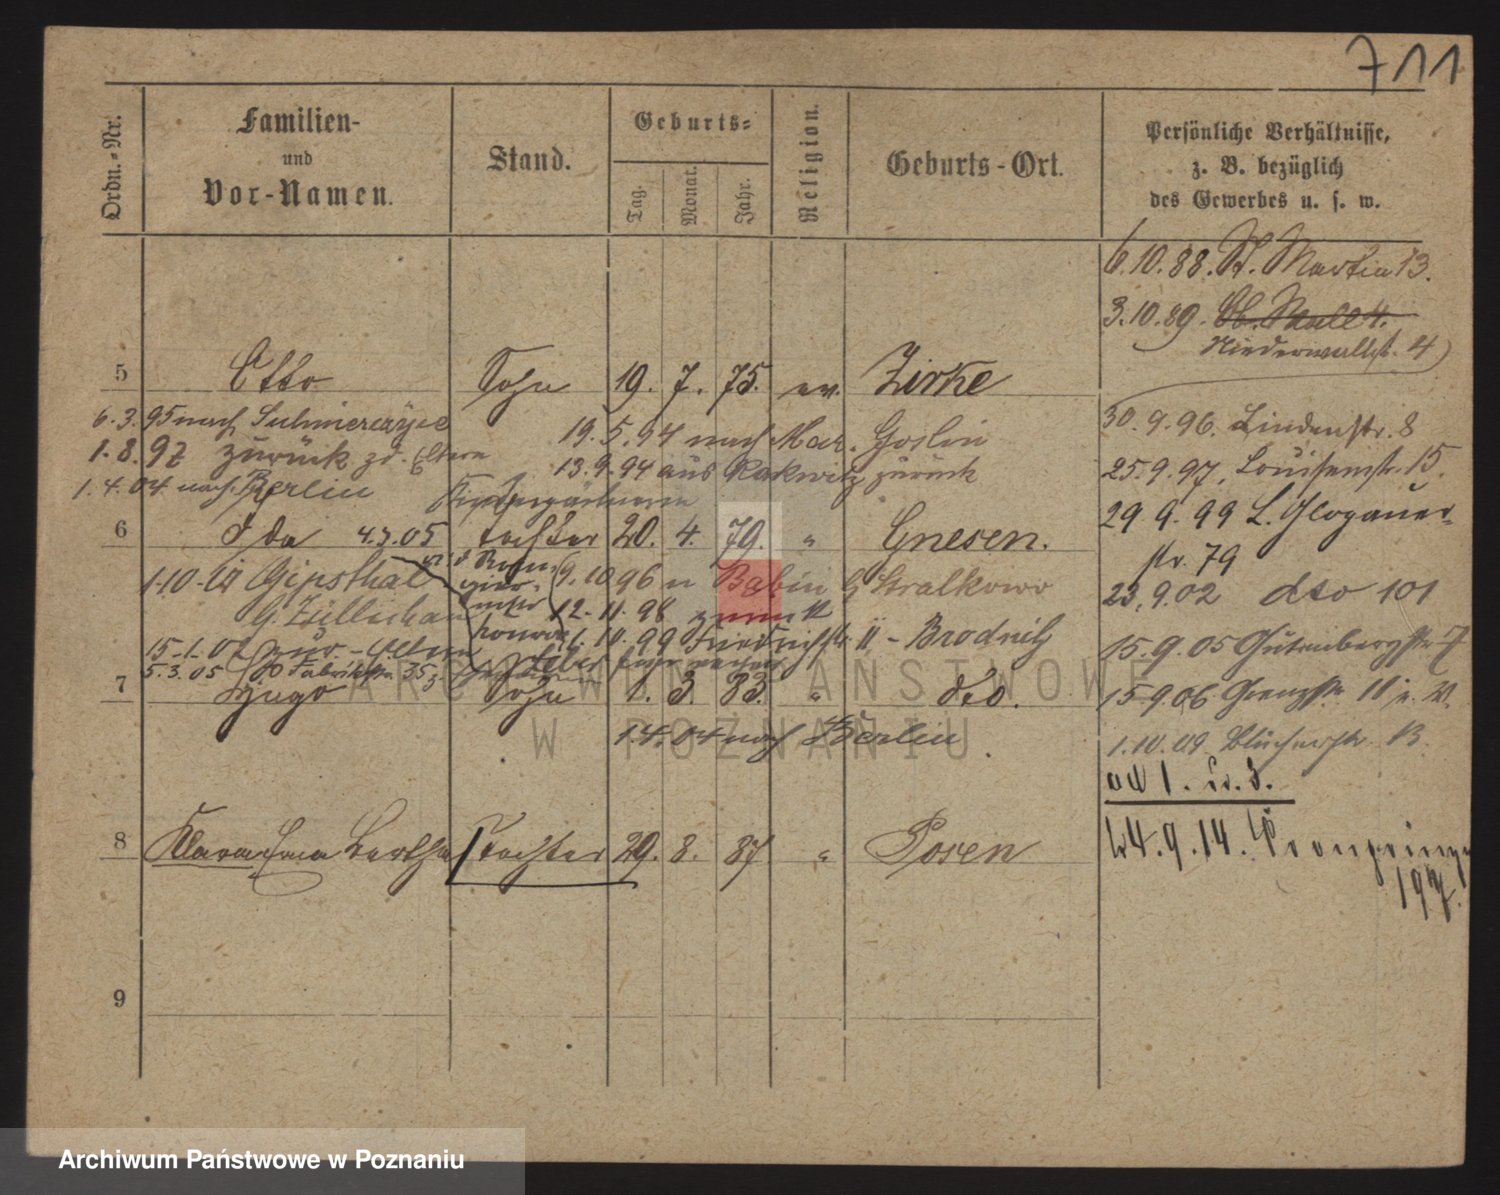 711
Ordn.-Nr.
Familien-
und
Vor-Namen.
Stand.
Geburts-
Tag.
Monat.
Jahr.
Religion.
Geburts-Ort.
Persönliche Verhältnisse,
z. B. bezüglich
des Gewerbes u. s. w.
6.10.88. St. Martin 13.
3.10.89. Ob. Wall 4.
Niederwallst. 4
5 Otto Sohn 19. 7. 75. ev. Zirke
6.3.95 nach
19.5.94 nach Mur. Goslin
30.9.96. Lindenstr. 8
1.8.97 zurück zd. Eltern
13.9.94 aus Rakwitz zurück
25.9.97. Louisenstr. 15.
1.4.04 nach Berlin
Kindergärtnerin
29.9.99 L. Glogauer-
str. 79
6 Ida 4.3.05 tochter 20. 4. 79. " Gnesen.
1.10. Gipsthal
9.10 96 n Babin b Stralkowo
23.9.02 dto 101
G. Züllichau
12.11.98 zurück
15.1.02 zur. Eltern
1.10.99 Friedrichstr. - Brodnitz
15.9.05 Gutenbergstr 7
5.3.05 Fabrikstr. 35
7 Hugo Sohn 1. 3. 83. " dto.
15.9.06 Grenzstr. 11
1.4.04 nach Berlin
1.10.09 Blücherstr. 13
ad 1.
8 Klara Emma Bertha Tochter 29. 8. 87 " Posen
24.9.14. Kronprinz
197.
9
ARCHIWUM PAŃSTWOWE
W POZNANIU
Archiwum Państwowe w Poznaniu